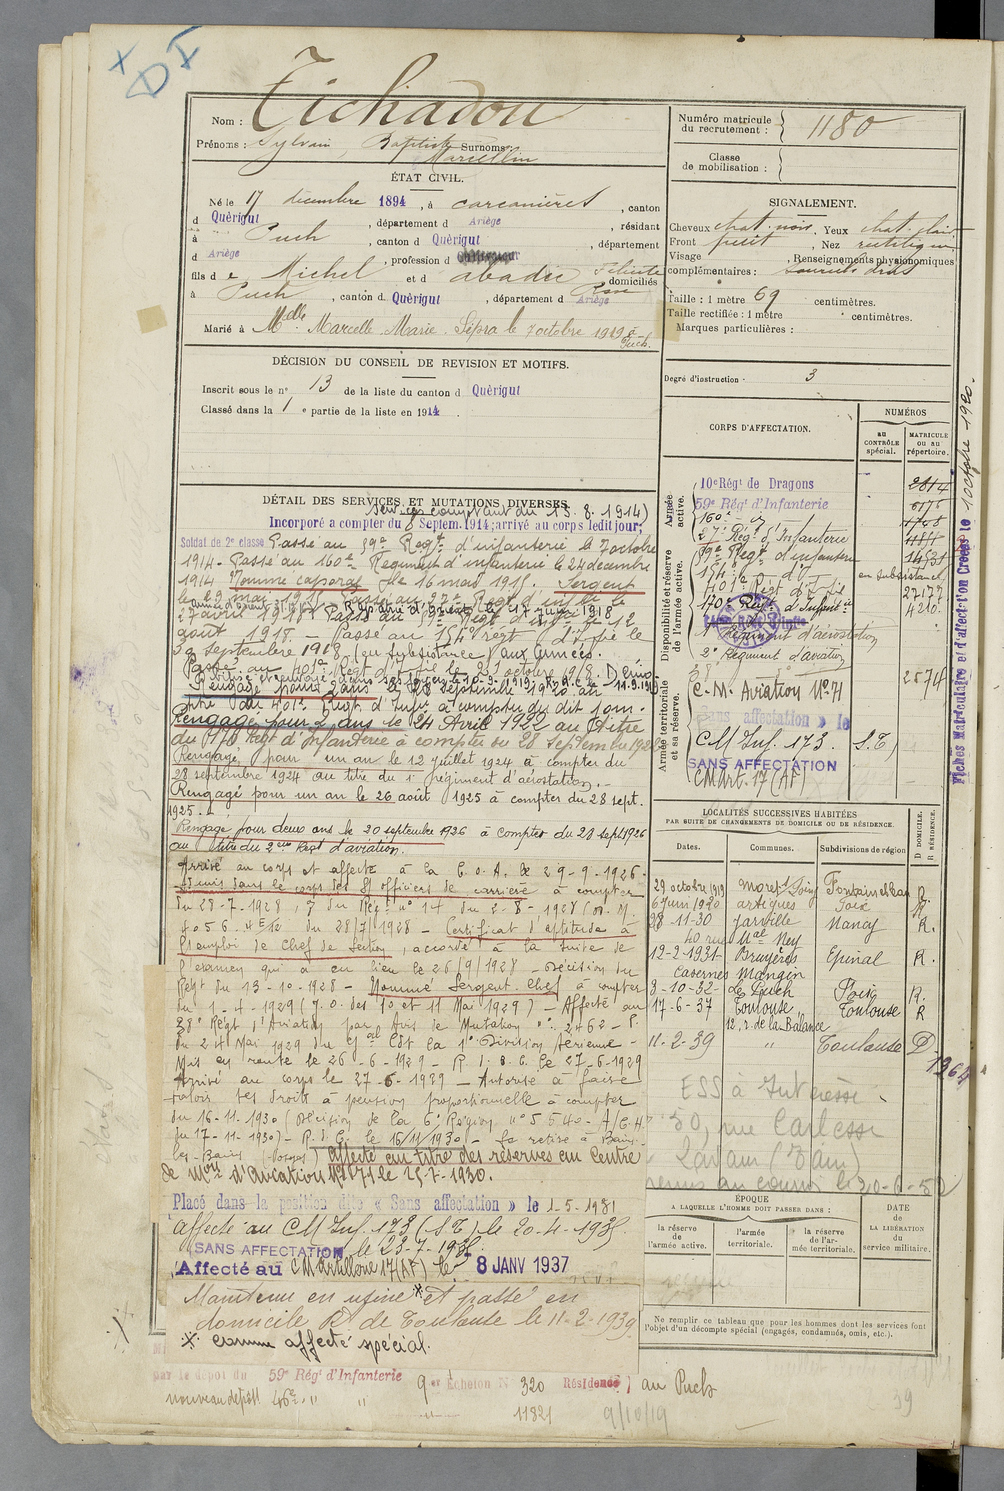 X DI
Nom : Tichadou
Prénoms : Sylvain, Baptiste Surnoms :
Marcellin
ÉTAT CIVIL.
Né le 17 décembre 1894, à carcanières, canton
d Quèrigut, département d Ariège, résidant
à Puch, canton d Quèrigut, département
d Ariège, profession d Cultivateur
fils d e Michel et d abadie Felicite Rose domiciliés
à Puch, canton d Quèrigut, département d Ariège
Marié à Melle Marcelle Marie Sépra le 7 octobre 1919 à Puch.
DÉCISION DU CONSEIL DE REVISION ET MOTIFS.
Inscrit sous le n° 13 de la liste du canton d Quèrigut
Classé dans la 1 e partie de la liste en 1914
DÉTAIL DES SERVICES ET MUTATIONS DIVERSES.
Services comptant du 15.8.1914)
Incorporé a compter du 8 Septem. 1914; arrivé au corps ledit jour;
Soldat de 2e classe Passé au 89e Regt d'infanterie le 7 octobre
1914 - Passé au 160e Regiment d'infanterie le 24 decembre
1914 Nomme caporal le 16 mars 1915. Sergent
le 29 mai 1915 Passé au 27e Regt d'inf le
27 avril 1918 Passé du 39e Regt d'inf le 12
Armée d'Orient Rapatrié d'Orient le 17 juin 1918
août 1918. - Passé au 154e regt d'Inf ie le
30 septembre 1918 (en subsistance) aux armées.
Passé au 401e Regt d'Inf le 21 octobre 1918.
Rengagé pour 2 ans le 28 septembre 1920 au
titre du 401e Regt. d'Infie à compter du dit jour.
Rengagé pour 2 ans le 24 Avril 1922 au titre
du 170e Regt d'Infanterie à compter du 28 Septembre 1922
Rengagé pour un an le 12 juillet 1924 à compter du
28 septembre 1924 au titre du 1er régiment d'aérostation.
Rengagé pour un an le 26 août 1925 à compter du 28 sept.
1925.
Rengagé pour deux ans le 20 septembre 1926 à compter du 28 sept 1926
au titre du 2eme Regt d'aviation.
Arrivé au corps et affecté à la C.O.A. le 29-9-1926.
Admis dans le corps des S/ officiers de carrière à compter
du 28-7-1928,
4056. 4E12 du 28/7/1928 - Certificat d'aptitude à
l'emploi de Chef de Section, accordé à la suite de
l'examen qui a eu lieu le 26/9/1928 - Décision du
Régt du 13-10-1928 - Nommé Sergent Chef à compter
du 1-4-1929 (J.O. des 10 et 11 Mai 1929) - Affecté au
38e Régt d'Aviation par Avis de Mutation n° 2462-P.
du 24 Mai 1929 du Gal Cdt la 1re Division Aérienne -
Mis en route le 26-6-1929 - R.D.C. le 27-6-1929
Arrivé au corps le 27-6-1929 - Autorisé à faire
valoir ses droits à pension proportionnelle à compter
du 16-11-1930 (Décision de la 6e Région n° 5540-A/C.H.
du 17-11-1930) - R.D.C. le 16/11/1930 - Se retire à Bains-
les-Bains (Vosges) Affecté au titre des réserves au Centre
de Mon d'Aviation N° 71 le 25-7-1930.
Placé dans la position dite « Sans affectation » le 1-5-1931
Affecté au CM Inf. 173 (S.T.) le 20-4-1935
SANS AFFECTATION, le 23-7-1935.
Affecté au CM artillerie 17 (AF) le 8 JANV 1937
Maintenu en usine* et passé en
domicile Rt de Toulouse le 11-2-1939.
* comme affecté spécial.
par le dépôt du 59e Rég' d'Infanterie 9er Echelon N° 320 Résidence au Puch
nouveau dépôt 46e " " 11821 9/10/19
Numéro matricule du recrutement : 1180
Classe de mobilisation :
SIGNALEMENT.
Cheveux chat. noir. Yeux chat. clair
Front petit, Nez rectiligne
Visage , Renseignements physionomiques
complémentaires : sourcils droits
Taille : 1 mètre 69 centimètres.
Taille rectifiée : 1 mètre centimètres.
Marques particulières :
Degré d'instruction : 3
CORPS D'AFFECTATION.
NUMÉROS
au CONTRÔLE spécial.
MATRICULE ou au répertoire.
Armée active.
Disponibilité et réserve de l'armée active.
Armée territoriale et sa réserve.
10e Régt de Dragons 2814
59e Rég' d'Infanterie 6176
160e id
27e Régt d'Infanterie
39e Regt d'infanterie
154e d° en subsistance
401e Régt d'Infie 27177
170e Régt d'Infanterie 4210
1er Régiment d'aérostation
2e Régiment d'aviation
38 2578
C.M. Aviation N° 71
Sans affectation » le
CM Inf. 173. S.T.
SANS AFFECTATION
CM Art. 17 (AF)
Fiches Matriculaire et d'affectation Creées le 1 Octobre 1920.
LOCALITÉS SUCCESSIVES HABITÉES
PAR SUITE DE CHANGEMENTS DE DOMICILE OU DE RÉSIDENCE.
Dates. Communes. Subdivisions de région D DOMICILE. R RÉSIDENCE.
29 octobre 1919 Fontainebleau R.
6 juin 1920 artigues Foix R
28-11-30 Jarville Nancy R.
40 rue Mal Ney
12-2-1931 Bruyères Epinal R.
Casernes Mangin
3-10-32 Le Puch Foix R.
17-6-37 Toulouse Toulouse R
12, r. de la Balance
11-2-39 " Toulouse D
1264
ESS à Intéressé
50, rue Carlesse
Lavaur (Tarn)
ÉPOQUE
A LAQUELLE L'HOMME DOIT PASSER DANS :
la réserve de l'armée active.
l'armée territoriale.
la réserve de l'armée territoriale.
DATE de LA LIBÉRATION du service militaire.
Ne remplir ce tableau que pour les hommes dont les services font
l'objet d'un décompte spécial (engagés, condamnés, omis, etc.).
39